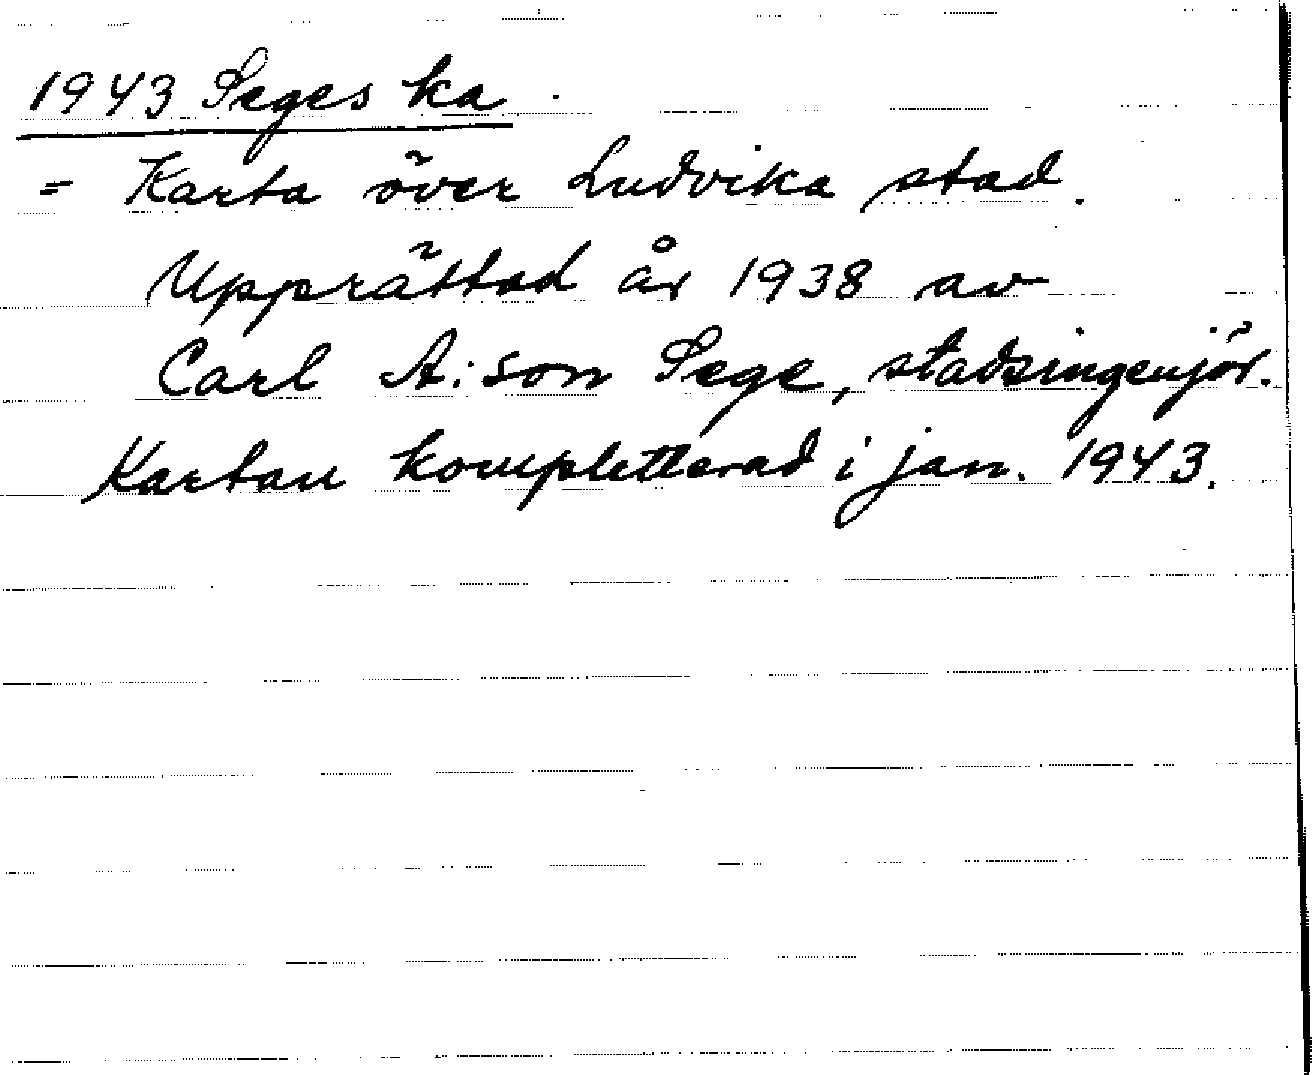 1943 Seges ka
= Karta över Ludvika stad.
Upprättad år 1938 av
Carl A:son Sege, stadsingenjör.
Kartan kompletterad i jan. 1943.